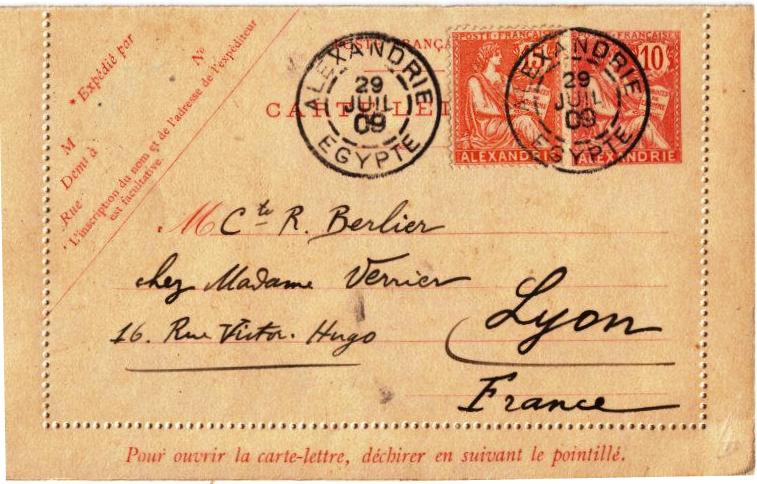 * Expédié par
N°
M
Demt à
Rue
"L'inscription du nom et de l'adresse de l'expéditeur
est facultative.
POSTE FRANÇAISE
15
POSTE FRANÇAISE
10c
ALEXANDRIE
29
JUIL
09
EGYPTE
ALEXANDRIE
29
JUIL
09
EGYPTE
CARTE-LET
ALEXANDRIE
ALEXANDRIE
M Cte R. Berlier
chez Madame Verrier
16. Rue Victor. Hugo
Lyon
France
Pour ouvrir la carte-lettre, déchirer en suivant le pointillé.